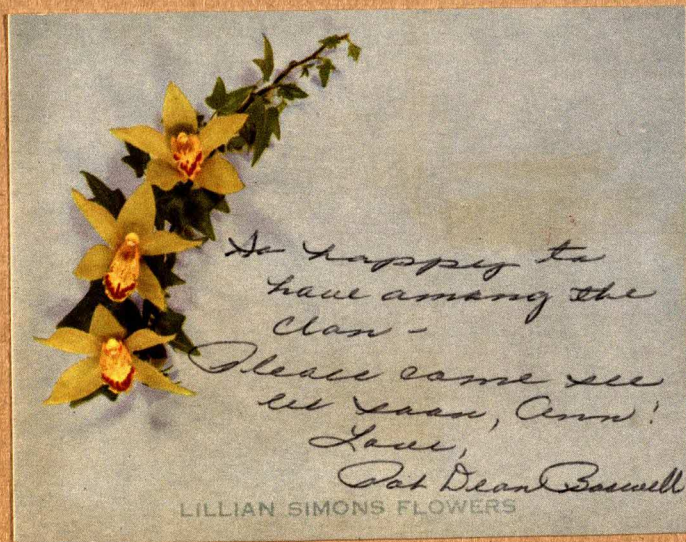 So happy to
have among the
clan -
Please come see
us soon, Ann!
Love,
Pat Dean Boswell
LILLIAN SIMONS FLOWERS